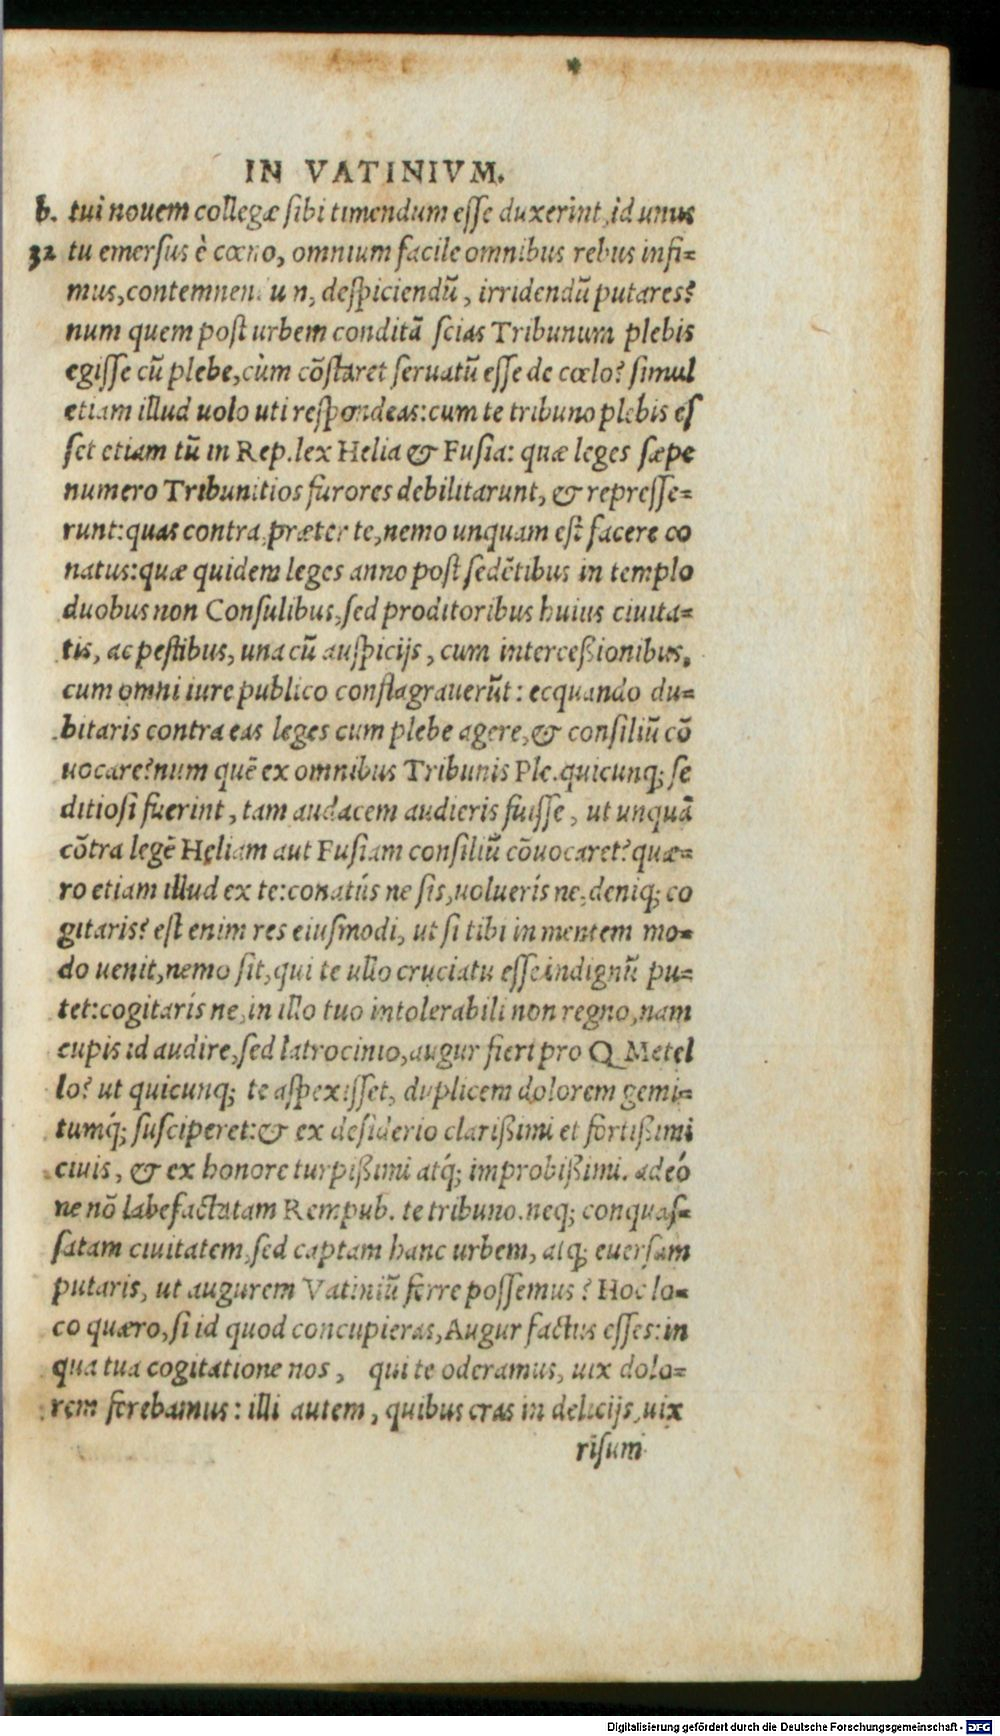 IN VATINIVM.
b. tui nouem collegæ sibi timendum esse duxerint, id unus
32 tu emersus è cœno, omnium facile omnibus rebus infi=
mus, despiciendũ, irridendũ putares?
num quem post urbem conditã scias Tribunum plebis
egisse cũ plebe, cùm cõstaret seruatũ esse de cœlo? simul
etiam illud uolo uti respondeas: cum te tribuno plebis es
set etiam tũ in Rep. lex Helia & Fusia: quæ leges sæpe
numero Tribunitios furores debilitarunt, & represse=
runt: quas contra, præter te, nemo unquam est facere co
natus: quæ quidem leges anno post sedẽtibus in templo
duobus non Consulibus, sed proditoribus huius ciuita=
tis, ac pestibus, una cũ auspicijs, cum interceßionibus,
cum omni iure publico conflagrauerũt: ecquando du=
bitaris contra eas leges cum plebe agere, & consiliũ cõ
uocare? num quẽ ex omnibus Tribunis Ple. quicunq; se
ditiosi fuerint, tam audacem audieris fuisse, ut unquã
cõtra legẽ Heliam aut Fusiam consiliũ cõuocaret? quæ=
ro etiam illud ex te: conatús ne sis, uoluerís ne, deniq; co
gitaris? est enim res eiusmodi, ut si tibi in mentem mo=
do uenit, nemo sit, qui te ullo cruciatu esse indignũ pu=
tet: cogitarís ne, in illo tuo intolerabili non regno, nam
cupis id audire, sed latrocinio, augur fieri pro Q. Metel
lo? ut quicunq; te aspexisset, duplicem dolorem gemi=
tumq́; susciperet: & ex desiderio clarißimi et fortißimi
ciuis, & ex honore turpißimi atq́; improbißimi. adeó
ne nõ labefactatam Rempub. te tribuno. neq; conquas=
satam ciuitatem, sed captam hanc urbem, atq; euersam
putaris, ut augurem Vatiniũ ferre possemus? Hoc lo=
co quæro, si id quod concupieras, Augur factus esses: in
qua tua cogitatione nos, qui te oderamus, uix dolo=
rem ferebamus: illi autem, quibus eras in delicijs, uix
risum
Digitalisierung gefördert durch die Deutsche Forschungsgemeinschaft - DFG